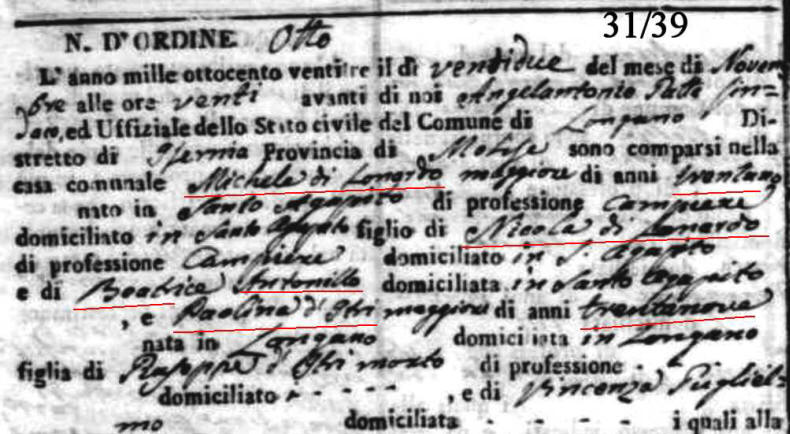 31/39
N. D'ORDINE Otto
L'anno mille ottocento ventitre il dì ventidue del mese di Novem-
bre alle ore venti avanti di noi Angelantonio Sin-
daco, ed Uffiziale dello Stato civile del Comune di Longano Di-
stretto di Isernia Provincia di Molise sono comparsi nella
casa comunale Michele di Lonardo maggiore di anni trentuno
nato in Santo Agapito di professione Campiere
domiciliato in Santo Agapito figlio di Nicola di Lonardo
di professione Campiere domiciliato in S. Agapito
e di Beatrice Antonillo domiciliata in Santo Agapito
, e Paolina d'Itri maggiore di anni trentanove
nata in Longano domiciliata in Longano
figlia di Giuseppe d'Itri morto di professione -
domiciliato - - - - , e di Vincenza Gugliel-
mo domiciliata - - - - i quali alla